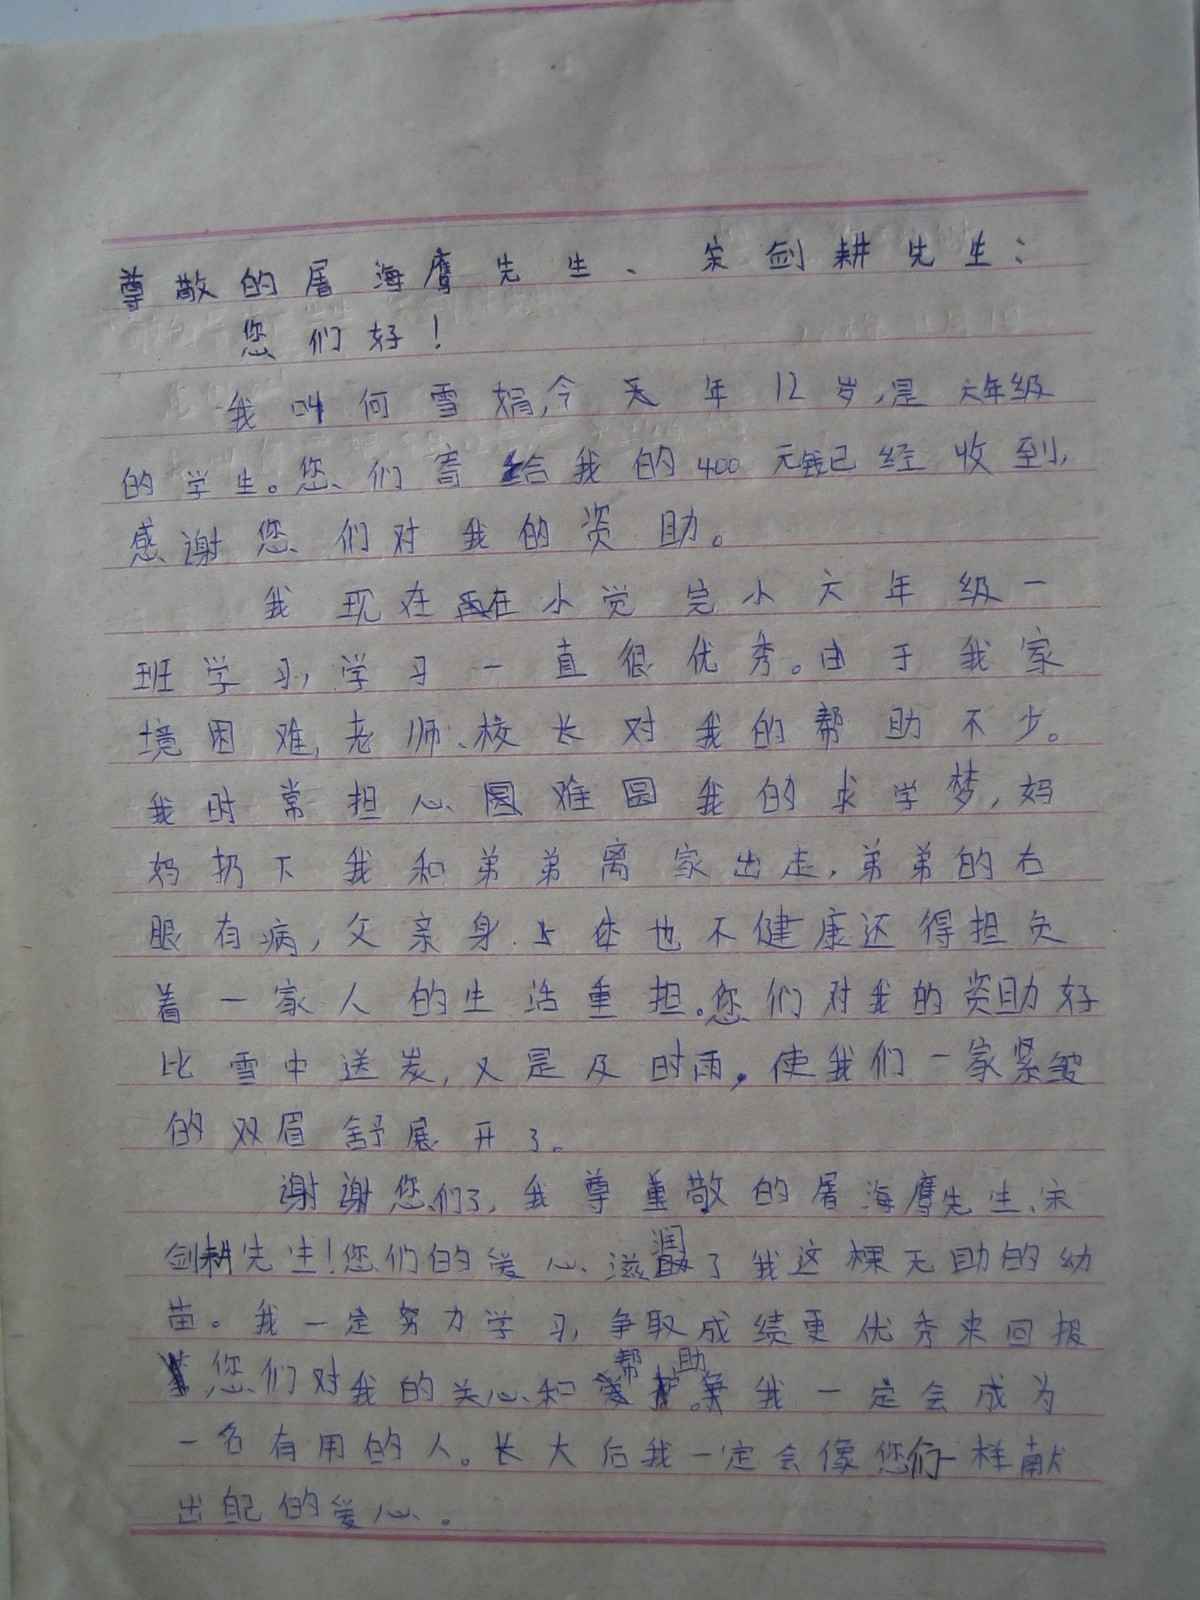 尊敬的屠海鹰先生、宋剑耕先生：
您们好！
我叫何雪娟,今年12岁,是六年级
的学生。您们寄给我的400元钱已经收到,
感谢您们对我的资助。
我现在在小觉完小六年级一
班学习,学习一直很优秀。由于我家
境困难,老师、校长对我的帮助不少。
我时常担心圆难圆我的求学梦,妈
妈扔下我和弟弟离家出走,弟弟的右
眼有病,父亲身体也不健康还得担负
着一家人的生活重担。您们对我的资助好
比雪中送炭,又是及时雨,使我们一家紧皱
的双眉舒展开了。
谢谢您们了,我尊敬的屠海鹰先生、宋
剑耕先生!您们的爱心滋润了我这棵无助的幼
苗。我一定努力学习,争取成绩更优秀来回报
您们对我的关心和帮助。我一定会成为
一名有用的人。长大后我一定会像您们一样献
出自己的爱心。